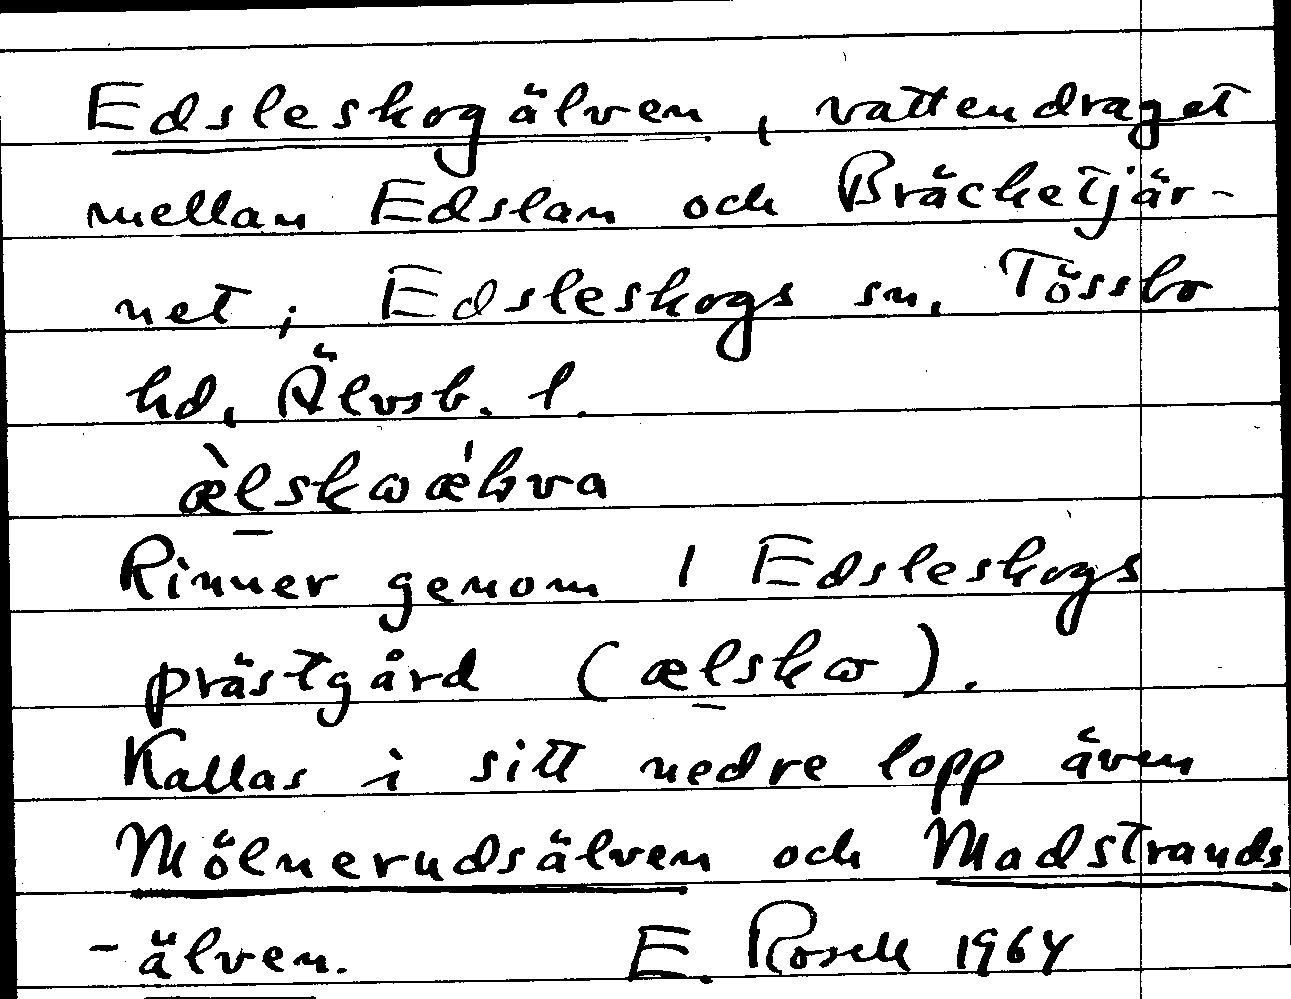 Edsleskogälven, vattendraget
mellan Edslan och Bräcketjär-
net; Edsleskogs sn, Tössbo
hd, Älvsb. l.
æ̀l̲skωǽlva
Rinner genom 1 Edsleskogs
prästgård (æl̲skω).
Kallas i sitt nedre lopp även
Mölnerudsälven och Madstrands
-älven. E. Rosell 1964